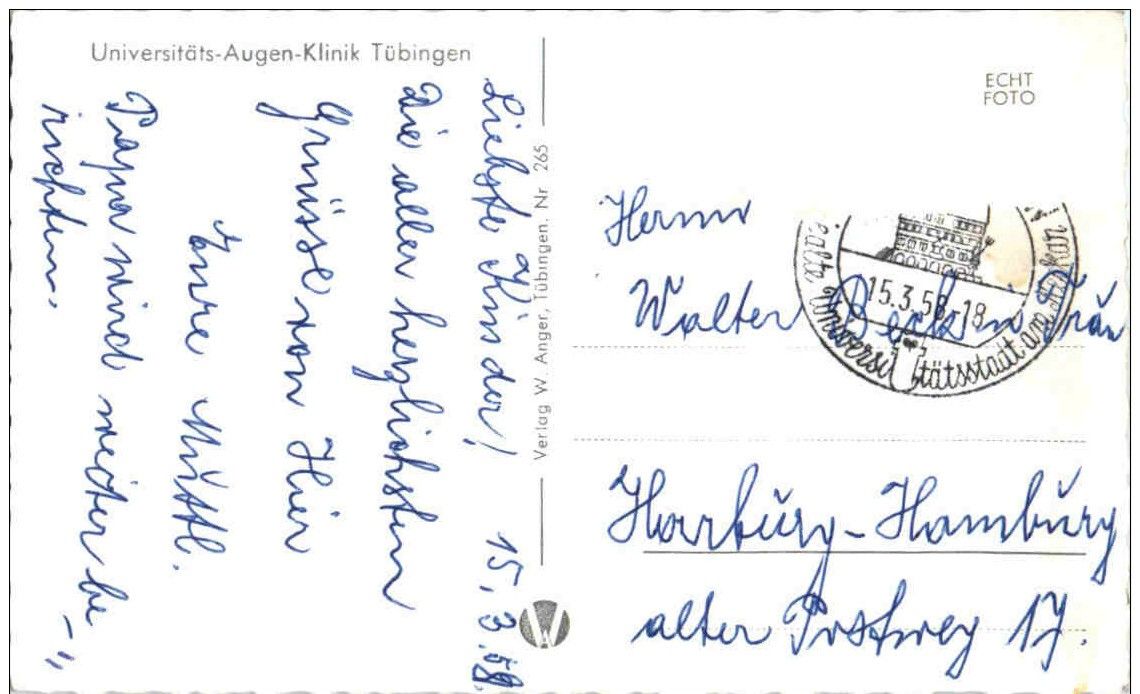 Universitäts-Augen-Klinik Tübingen
Liebste Kinder! 15.3.58.
Die aller herzlichsten
Grüsse von Hier
Eure Müttl.
Papa wird weiter be-
richten.
Verlag W. Anger, Tübingen. Nr 265
ECHT
FOTO
15.3.58-18
alte Universitätsstadt am Neckar
Herrn
Walter
Harburg-Hamburg
alter Postweg 17.